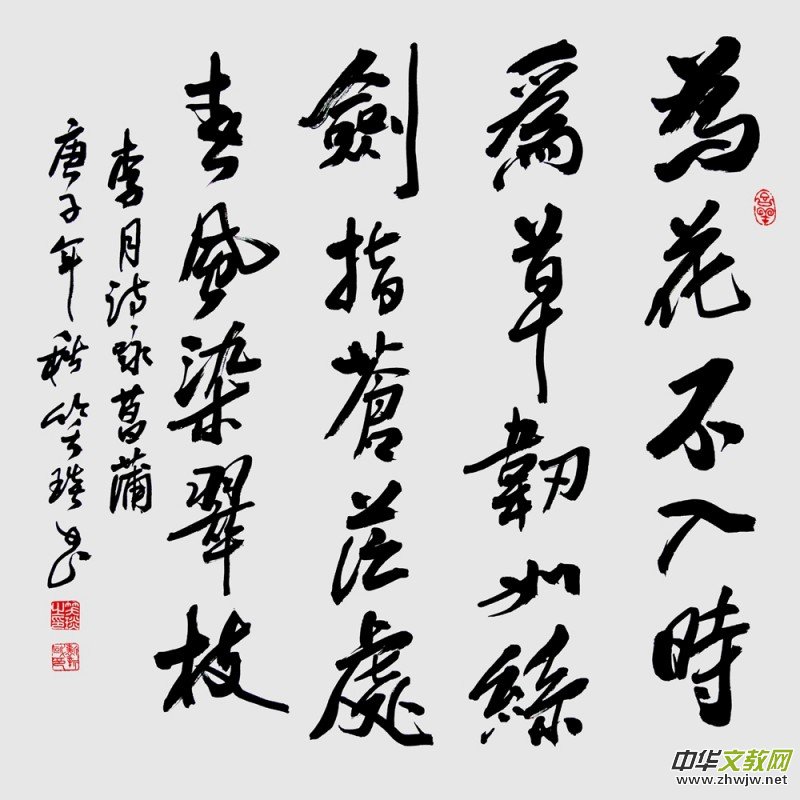 為花不入時
爲草韌如絲
劍指蒼茫處
春風染翠枝
李月诗咏菖蒲
庚子年秋笑琰书
中华文教网
www.zhwjw.net